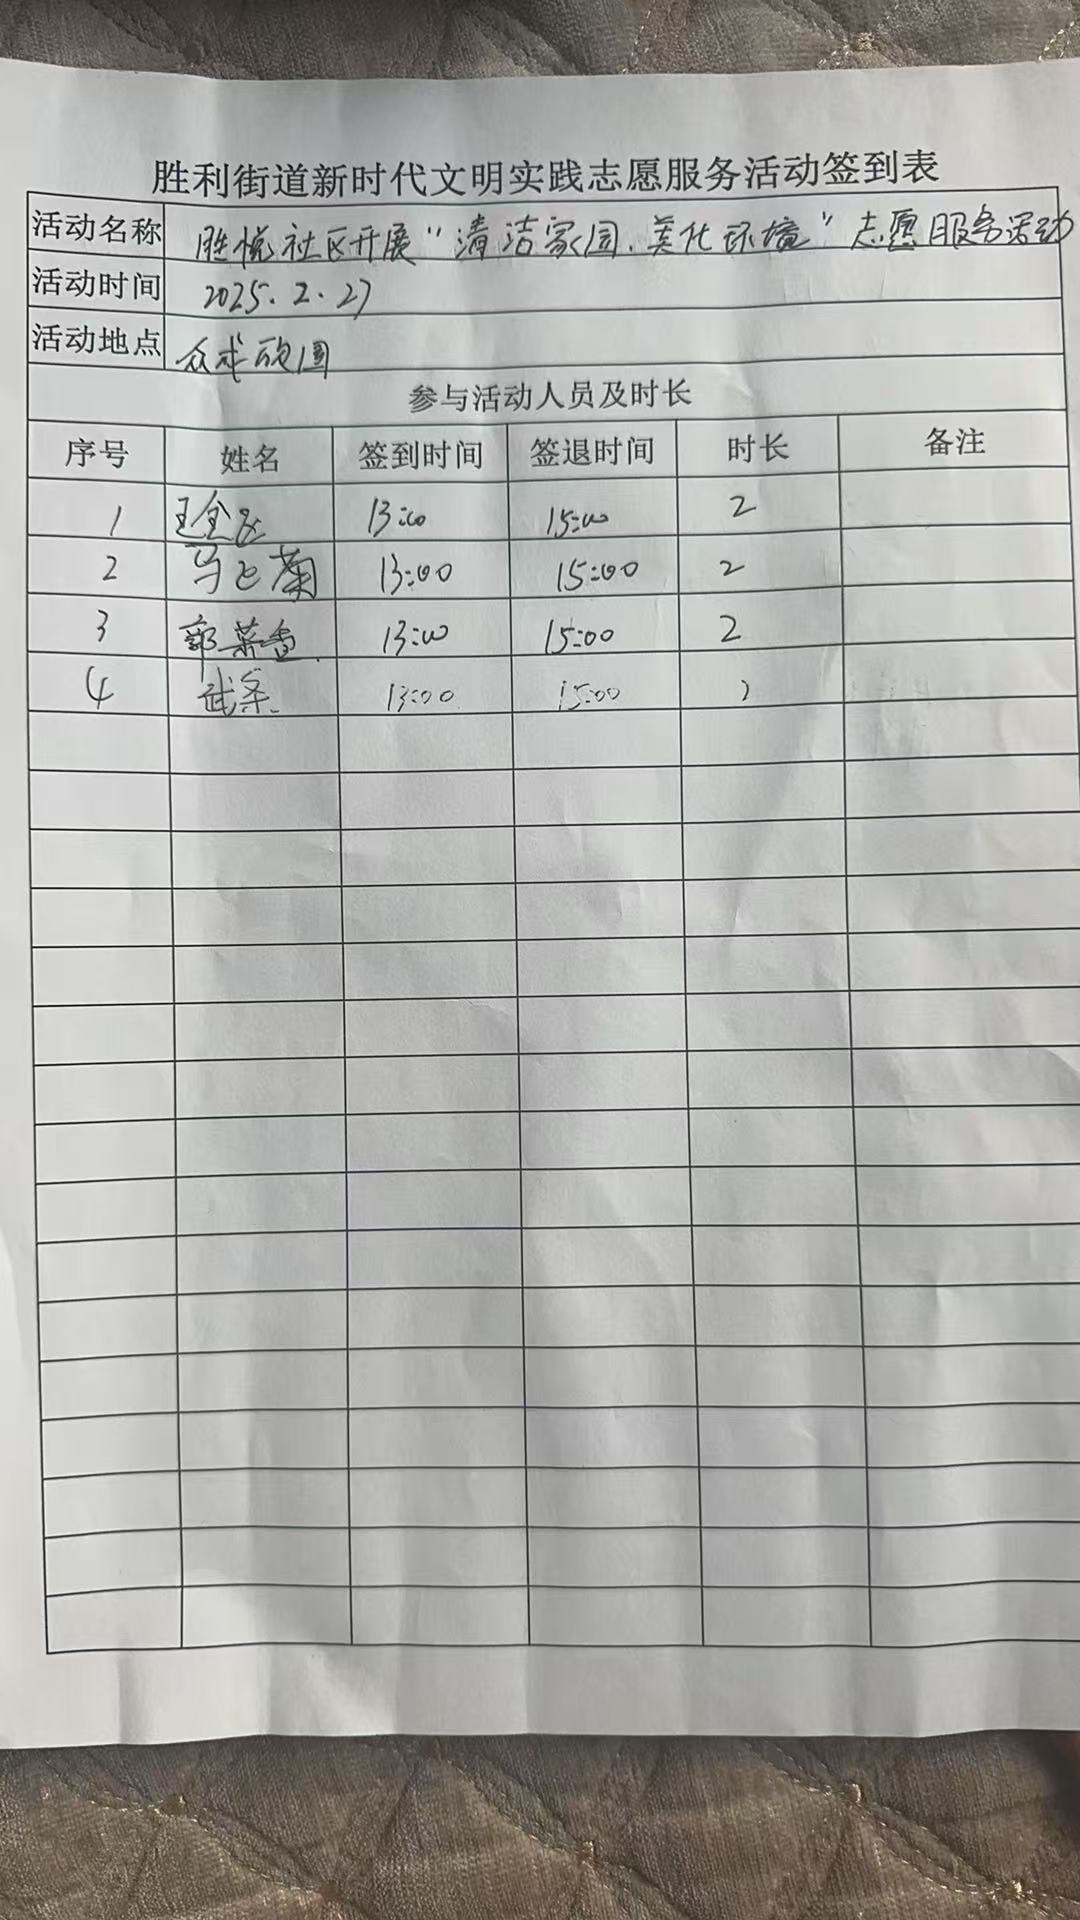 胜利街道新时代文明实践志愿服务活动签到表
活动名称 胜悦社区开展“清洁家园、美化环境”志愿服务活动
活动时间 2025.2.27
活动地点 众成欣园
参与活动人员及时长
序号 姓名 签到时间 签退时间 时长 备注
1 王金 13:00 15:00 2
2 马 菊 13:00 15:00 2
3 郭菜香 13:00 15:00 2
4 武 13:00 15:00 2